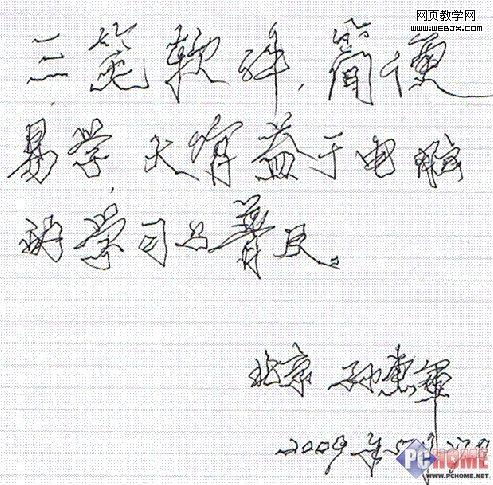 网页教学网
WWW.WEBJX.COM
三笔软件,简便
易学,大有益于电脑
的学习与普及。
北京 孙惠军
2009年
PCHOME
WWW.PCHOME.NET